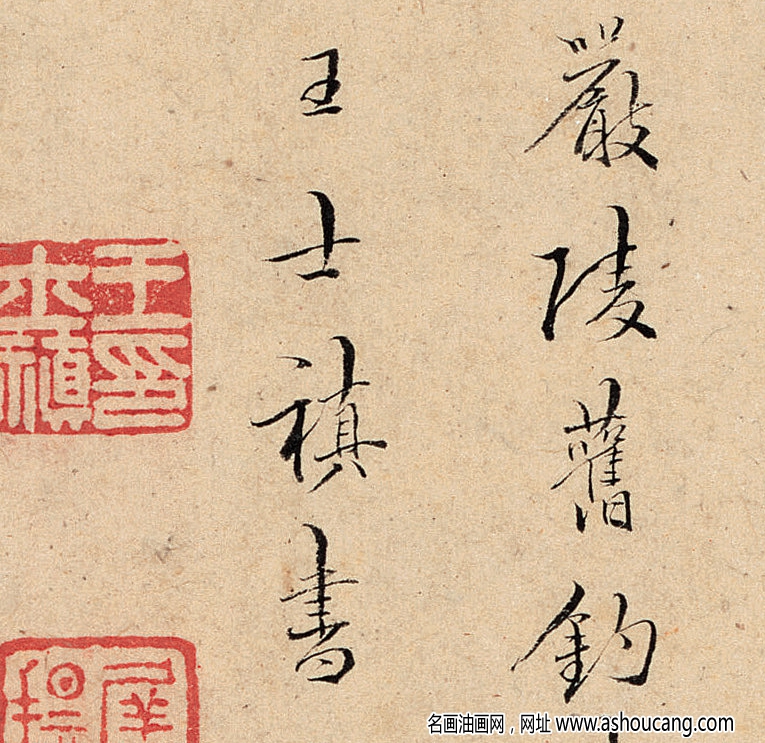 嚴陵舊釣
王士禛書
王印士禛
名画油画网，网址 www.ashoucang.com